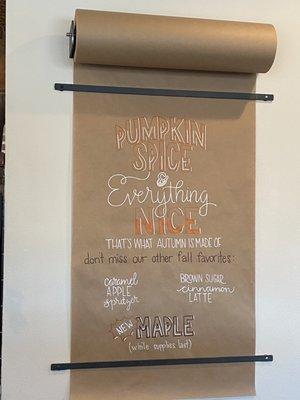 PUMPKIN
SPICE
&
Everything
NICE
THAT'S WHAT AUTUMN IS MADE OF
don't miss our other fall favorites:
caramel
APPLE
spritzer
BROWN SUGAR
cinnamon
LATTE
NEW MAPLE
(while supplies last)